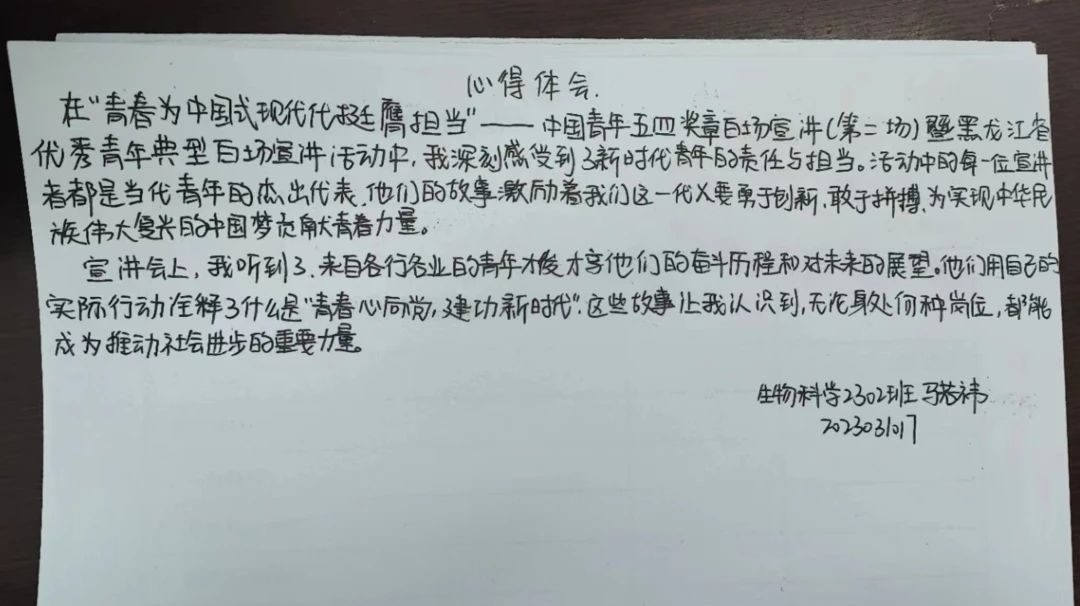 心得体会.
在“青春为中国式现代代挺膺担当”——中国青年五四奖章百场宣讲(第二场)暨黑龙江省
优秀青年典型百场宣讲活动中,我深刻感受到了新时代青年的责任与担当。活动中的每一位宣讲
者都是当代青年的杰出代表,他们的故事激励着我们这一代人要勇于创新、敢于拼搏,为实现中华民
族伟大复兴的中国梦贡献青春力量。
宣讲会上,我听到了,来自各行各业的青年才俊才享他们的奋斗历程和对未来的展望。他们用自己的
实际行动诠释了什么是“青春心向党,建功新时代”.这些故事让我认识到,无论身处何种岗位,都能
成为推动社会进步的重要力量。
生物科学2302班 马若祎
2023031017